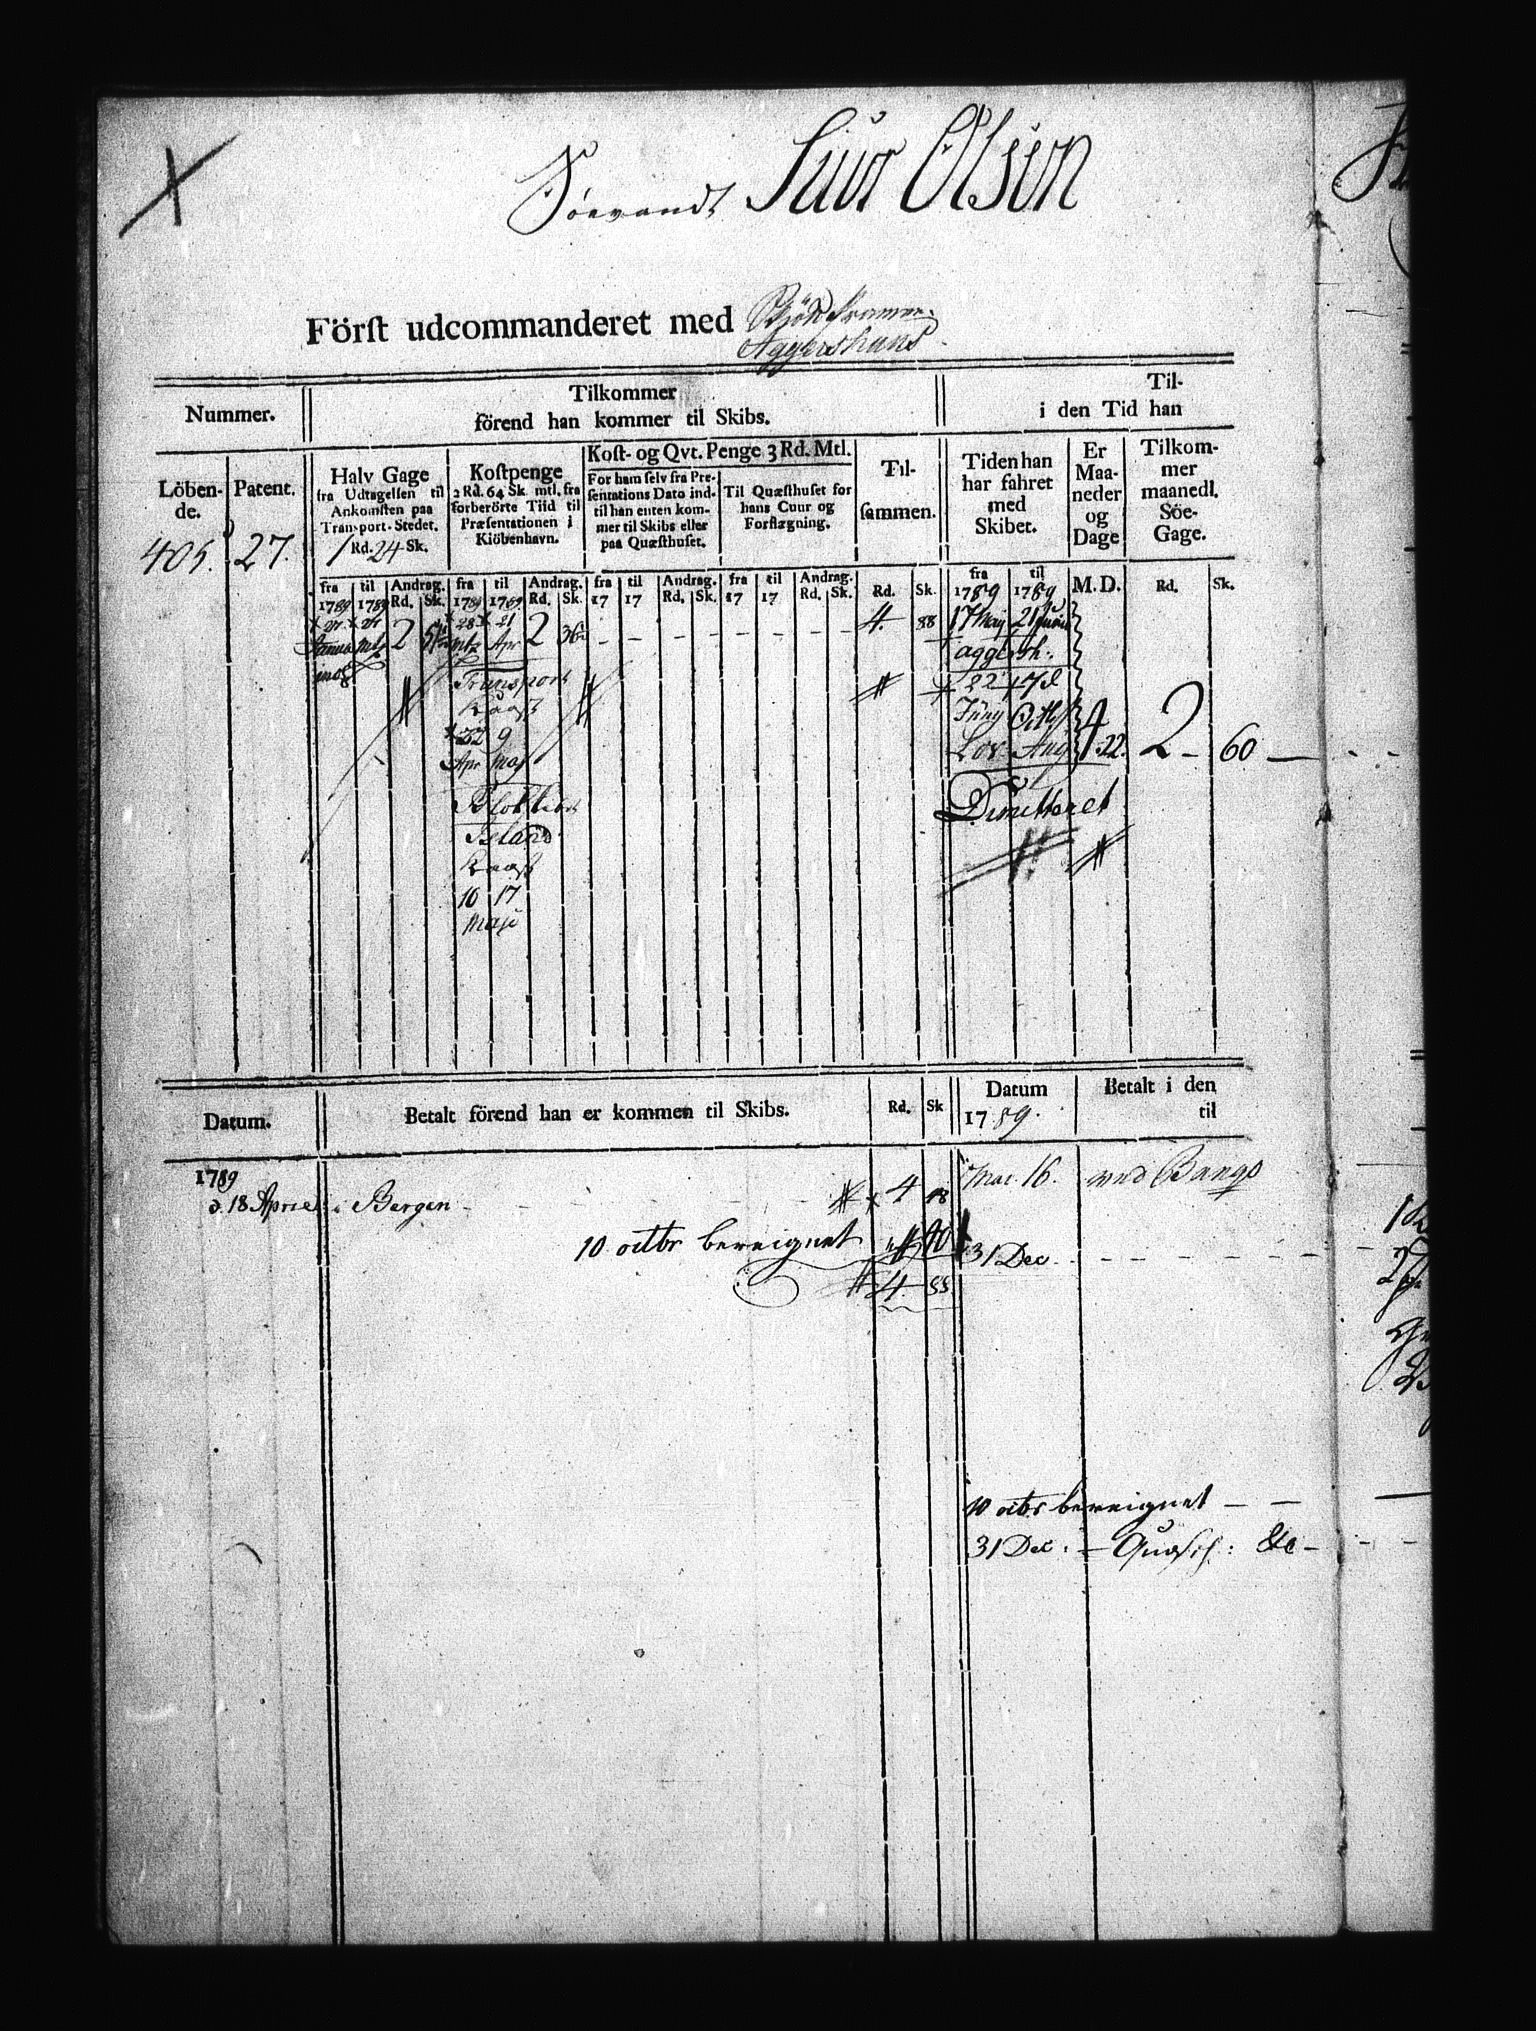 Söevandt Siur Olsen
Först udcommanderet med
Aggershuus
Nummer.
Tilkommer
förend han kommer til Skibs.
Til-
i den Tid han
Löben-
de.
Patent.
Halv Gage
fra Udtagelsen til
Ankomsten paa
Transport-Stedet.
1 Rd. 24 Sk.
Kostpenge
2 Rd. 64 Sk. mtl. fra
forberörte Tiid til
Præsentationen i
Kiöbenhavn.
Kost- og Qvt. Penge 3 Rd. Mtl.
For ham selv fra Pre-
sentations Dato ind-
til han enten kom-
mer til Skibs eller
paa Quæsthuset.
Til Quæsthuset for
hans Cuur og
Forflægning.
Til-
sammen.
Tiden han
har fahret
med
Skibet.
Er
Maa-
neder
og
Dage
Tilkom-
mer
maanedl.
Söe-
Gage.
405. 27.
fra til Andrag. fra til Andrag. fra til Andrag. fra til Andrag. fra til
1789 1789 Rd. Sk. 1789 1789 Rd. Sk. 17 17 Rd. Sk. 17 17 Rd. Sk. Rd. Sk. 1789 1789 M. D. Rd. Sk.
27 27 2 28 21 2 36 4. 88 17 May 21 Juni
Apr
aggersh.
Transport
Kaast
22 17
Juny
22 9
Apr Maj
4. 22. 2 60
Dimitteret
Island
Kaast
10 17
Maji
Datum. Betalt förend han er kommen til Skibs. Rd. Sk Datum
1789.
Betalt i den
til
1789
d. 18 Apriel i Bergen 4 18 Mai 16. ved Bangs
10 octbr bereignet 31 Dec.
4 88
10 octbr bereignet
31 Dec: &c